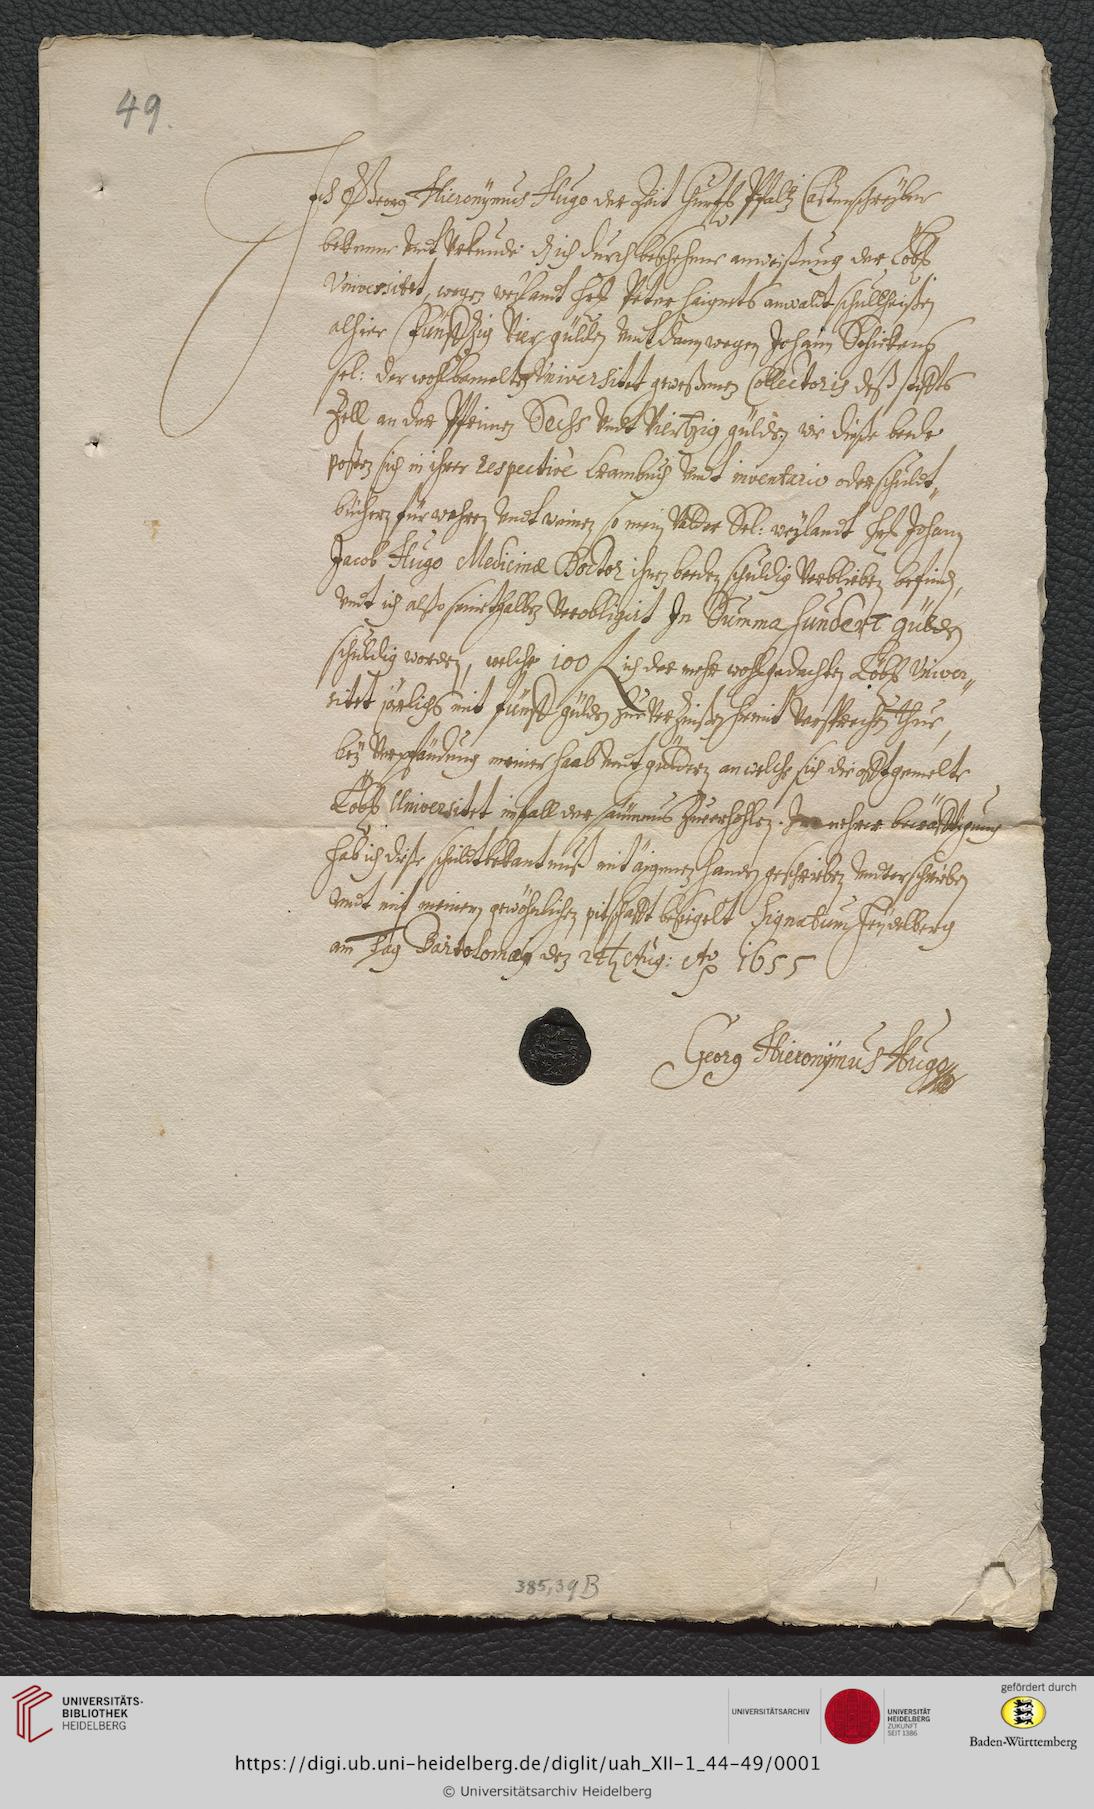 49.
Ich Georg Hieronÿmus Hugo der Zeit Churfs Pfaltz Cammerschreÿber
bekenne undt Urkunde dz ich durch beschehene anweißung der Löbs
Universitet, wegen weÿlandt Hrs Peter anwaldt schultheißen
alhier fünffzig Vier gülden undt dann wegen Johann Schickens
sel: der wohlbemelten Universitet geweßenen Collectoris deß stiffts
Zell an der Pfrimen Sechs undt Viertzig gülden wie dieße beede
posten sich in ihrer respectivè undt inventario oder schuldt„
bücher undt meines Vatter Sel: weÿlandt Hrs Johann
Jacob Hugo Medicinæ Doctor ihnen beeden schuldig Verblieben befinden,
undt ich alßo seinethalben Verobligirt In Summa hundert gülden
schuldig worden, welche 100 f ich der mehr wohlgedachten Löbs Univer„
sitet järlichs mit fünff gülden Zue Verzinßen hiemit Versprechen thue,
beÿ Verpfändung meiner haab undt gütteren an welche sich die offtgemelte
Löbs Universitet im fall der säumnus Zuerhohlen. In mehrer becräfftigung
hab ich dieße schuldtbekantnuß mit äigenen handen geschrieben underschrieben
undt mit meinem gewöhnlichen pitschafft besigelt Signatum Heÿdelberg
am tag Bartolomæi den 24t Aug: Ao 1655
Georg Hieronÿmus Hugo
385,39 B
UNIVERSITÄTS-
BIBLIOTHEK
HEIDELBERG
UNIVERSITÄTSARCHIV
UNIVERSITÄT
HEIDELBERG
ZUKUNFT
SEIT 1386
gefördert durch
Baden-Württemberg
https://digi.ub.uni-heidelberg.de/diglit/uah_XII-1_44-49/0001
© Universitätsarchiv Heidelberg